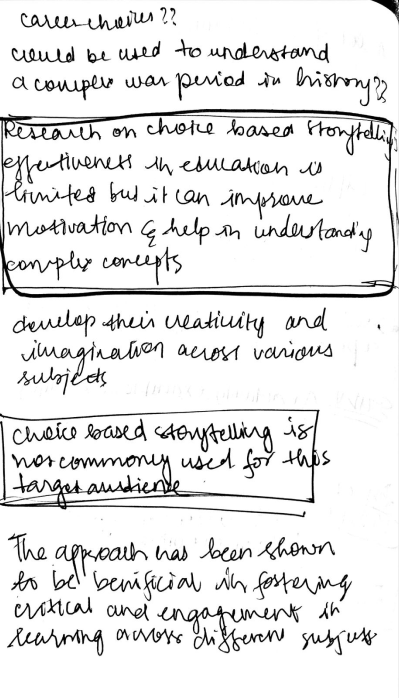 career choices??
could be used to understand
a complex war period in history??
Research on choice based storytelling
effectiveness in education is
limited but it can improve
motivation & help in understanding
complex concepts
develop their creativity and
imagination across various
subjects
choice based storytelling is
not commonly used for this
target audience
The approach has been shown
to be benificial in fostering
critical and engagement in
learning across different subjects